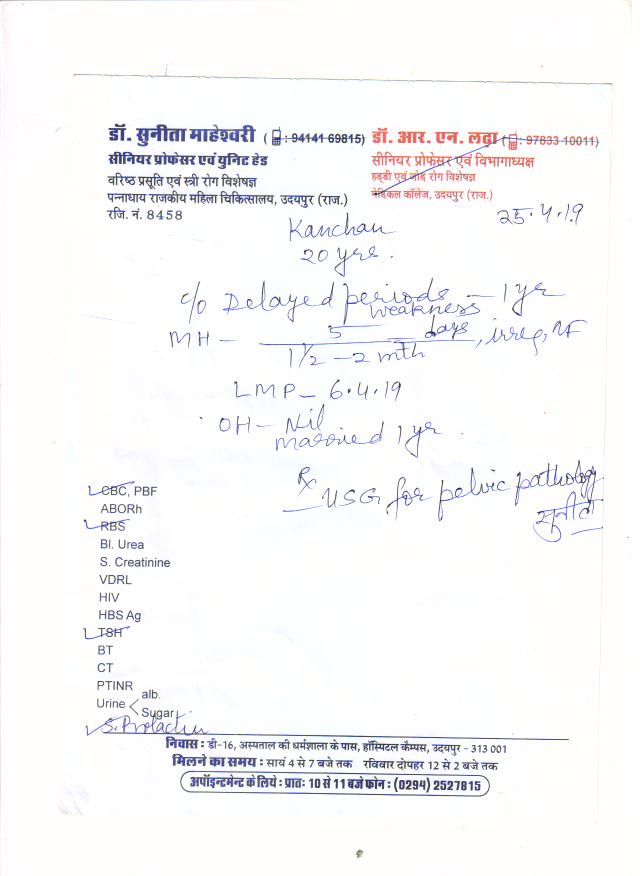 डॉ. सुनीता माहेश्वरी ( : 94141 69815) डॉ. आर. एन. लढ़ा ( : 97833 10011)
सीनियर प्रोफेसर एवं युनिट हेड सीनियर प्रोफेसर एवं विभागाध्यक्ष
वरिष्ठ प्रसूति एवं स्त्री रोग विशेषज्ञ हड्डी एवं जोड़ रोग विशेषज्ञ
पन्नाधाय राजकीय महिला चिकित्सालय, उदयपुर (राज.) मेडिकल कॉलेज, उदयपुर (राज.)
रजि. नं. 8458 25.4.19
Kanchan
20 yrs.
c/o Delayed periods — 1 yr
weakness
MH — 5 days, irreg, NF
1 1/2 – 2 mth
LMP – 6.4.19
OH – Nil
married 1 yr
Rx
USG for pelvic pathology
सुनीता
CBC, PBF
ABORh
RBS
Bl. Urea
S. Creatinine
VDRL
HIV
HBS Ag
TSH
BT
CT
PTINR
Urine < alb.
Sugar
S. Prolactin
निवास : डी-16, अस्पताल की धर्मशाला के पास, हॉस्पिटल कैम्पस, उदयपुर - 313 001
मिलने का समय : सायं 4 से 7 बजे तक रविवार दोपहर 12 से 2 बजे तक
अपॉइन्टमेन्ट के लिये : प्रातः 10 से 11 बजे फोन : (0294) 2527815